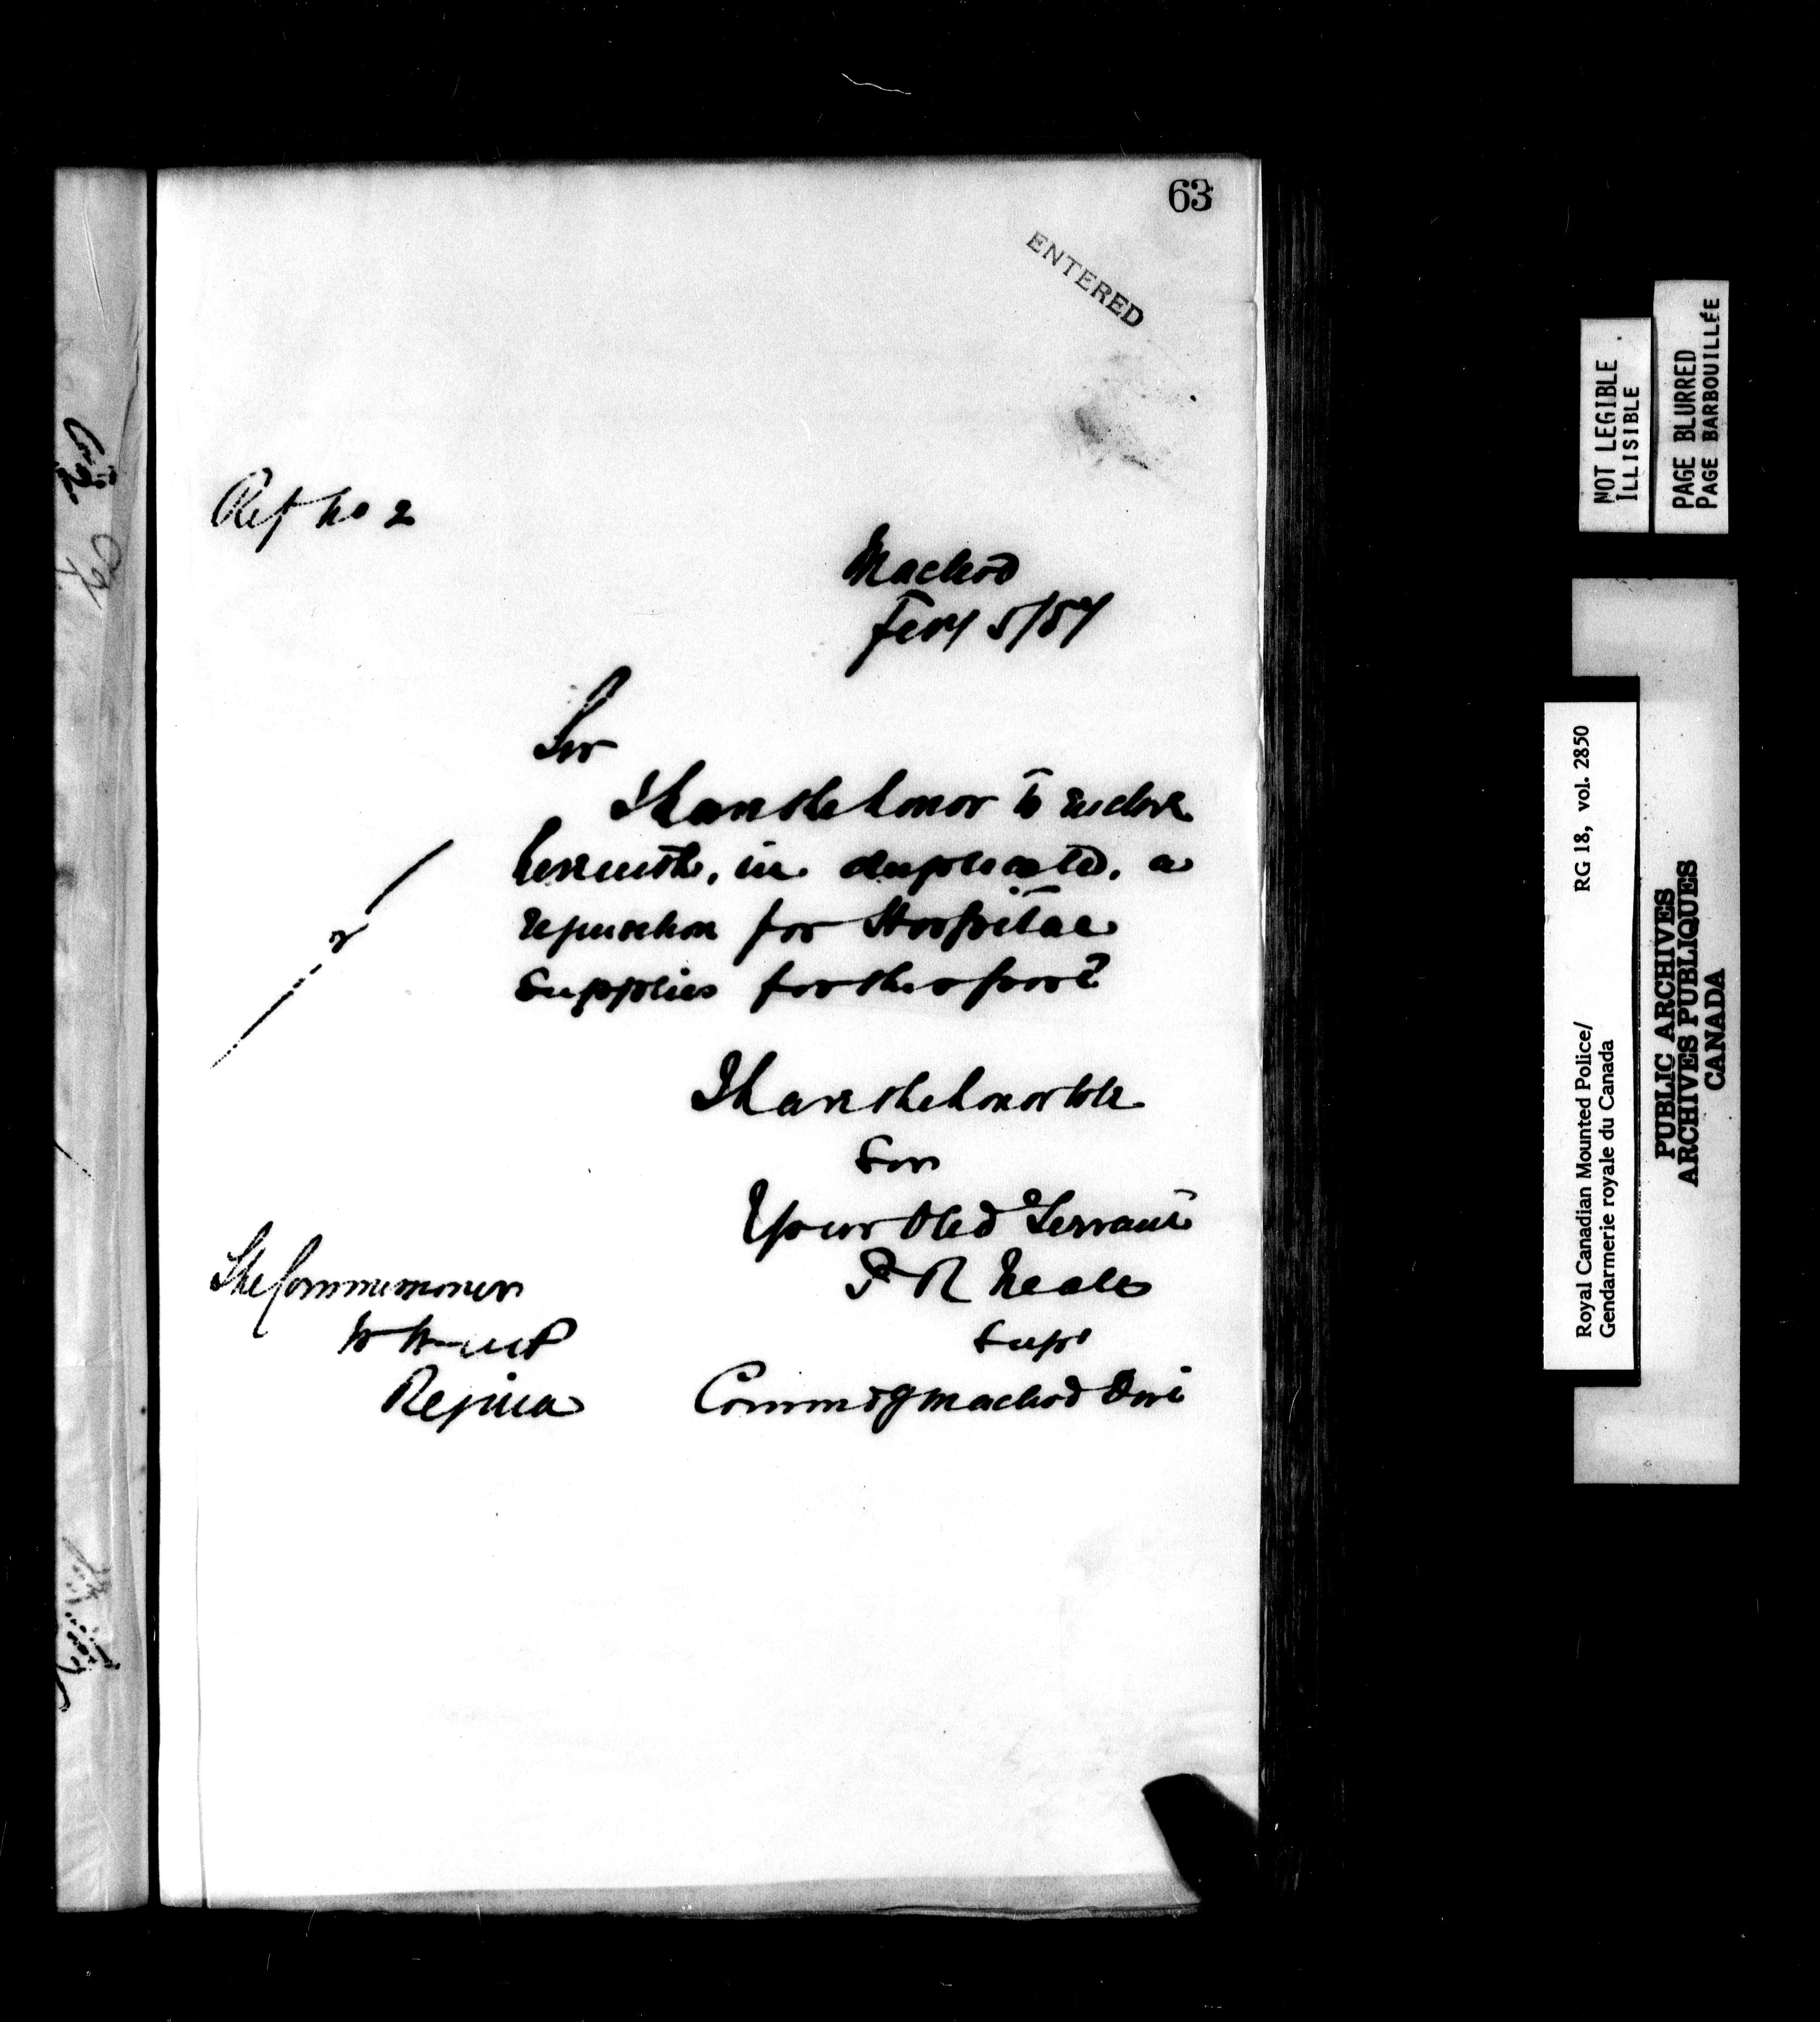 63
ENTERED
Ref No 2
Macleod
Feby 5/87
Sir
I have the honor to enclose
herewith, in duplicate, a
requisition for Hospital
Supplies for this post
I have the honor to be
Sir
Your Obed Servant
P R Neale
Supt
Commdg Macleod Dist
The Commissioner
N W M P
Regina
NOT LEGIBLE
ILLISIBLE
PAGE BLURRED
PAGE BARBOUILLÉE
Royal Canadian Mounted Police/ RG 18, vol. 2850
Gendarmerie royale du Canada
PUBLIC ARCHIVES
ARCHIVES PUBLIQUES
CANADA